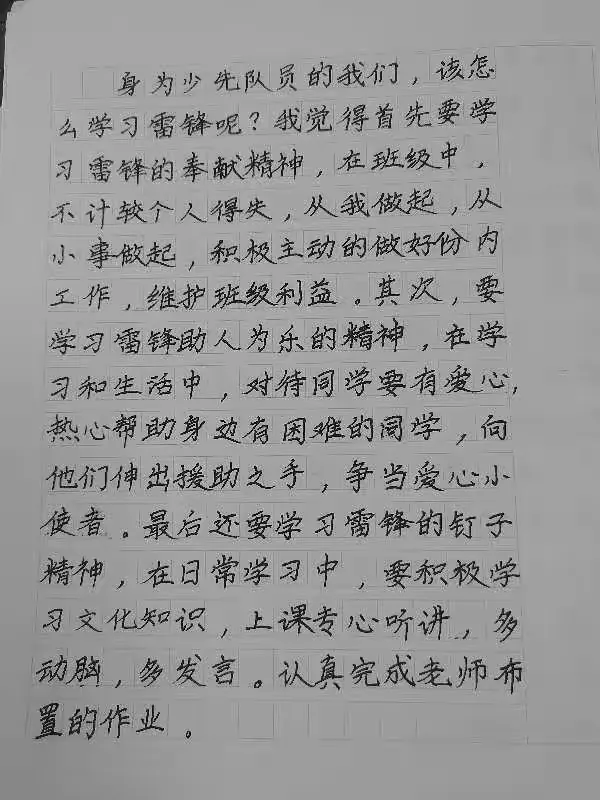 身为少先队员的我们，该怎
么学习雷锋呢？我觉得首先要学
习雷锋的奉献精神，在班级中，
不计较个人得失，从我做起，从
小事做起，积极主动的做好份内
工作，维护班级利益。其次，要
学习雷锋助人为乐的精神，在学
习和生活中，对待同学要有爱心，
热心帮助身边有困难的同学，向
他们伸出援助之手，争当爱心小
使者。最后还要学习雷锋的钉子
精神，在日常学习中，要积极学
习文化知识，上课专心听讲，多
动脑，多发言。认真完成老师布
置的作业。